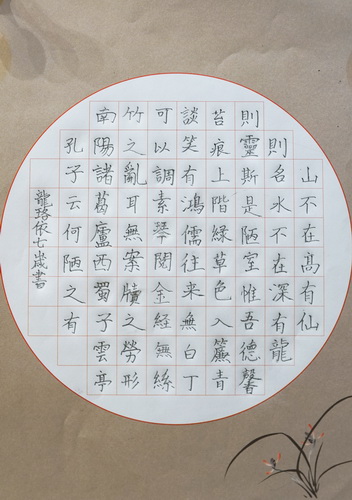 山不在高有仙
則名水不在深有龍
則靈斯是陋室惟吾德馨
苔痕上階緑草色入簾青
談笑有鴻儒往来無白丁
可以調素琴閱金經無絲
竹之亂耳無案牘之勞形
南陽諸葛廬西蜀子雲亭
孔子云何陋之有
龍珞依七歲書